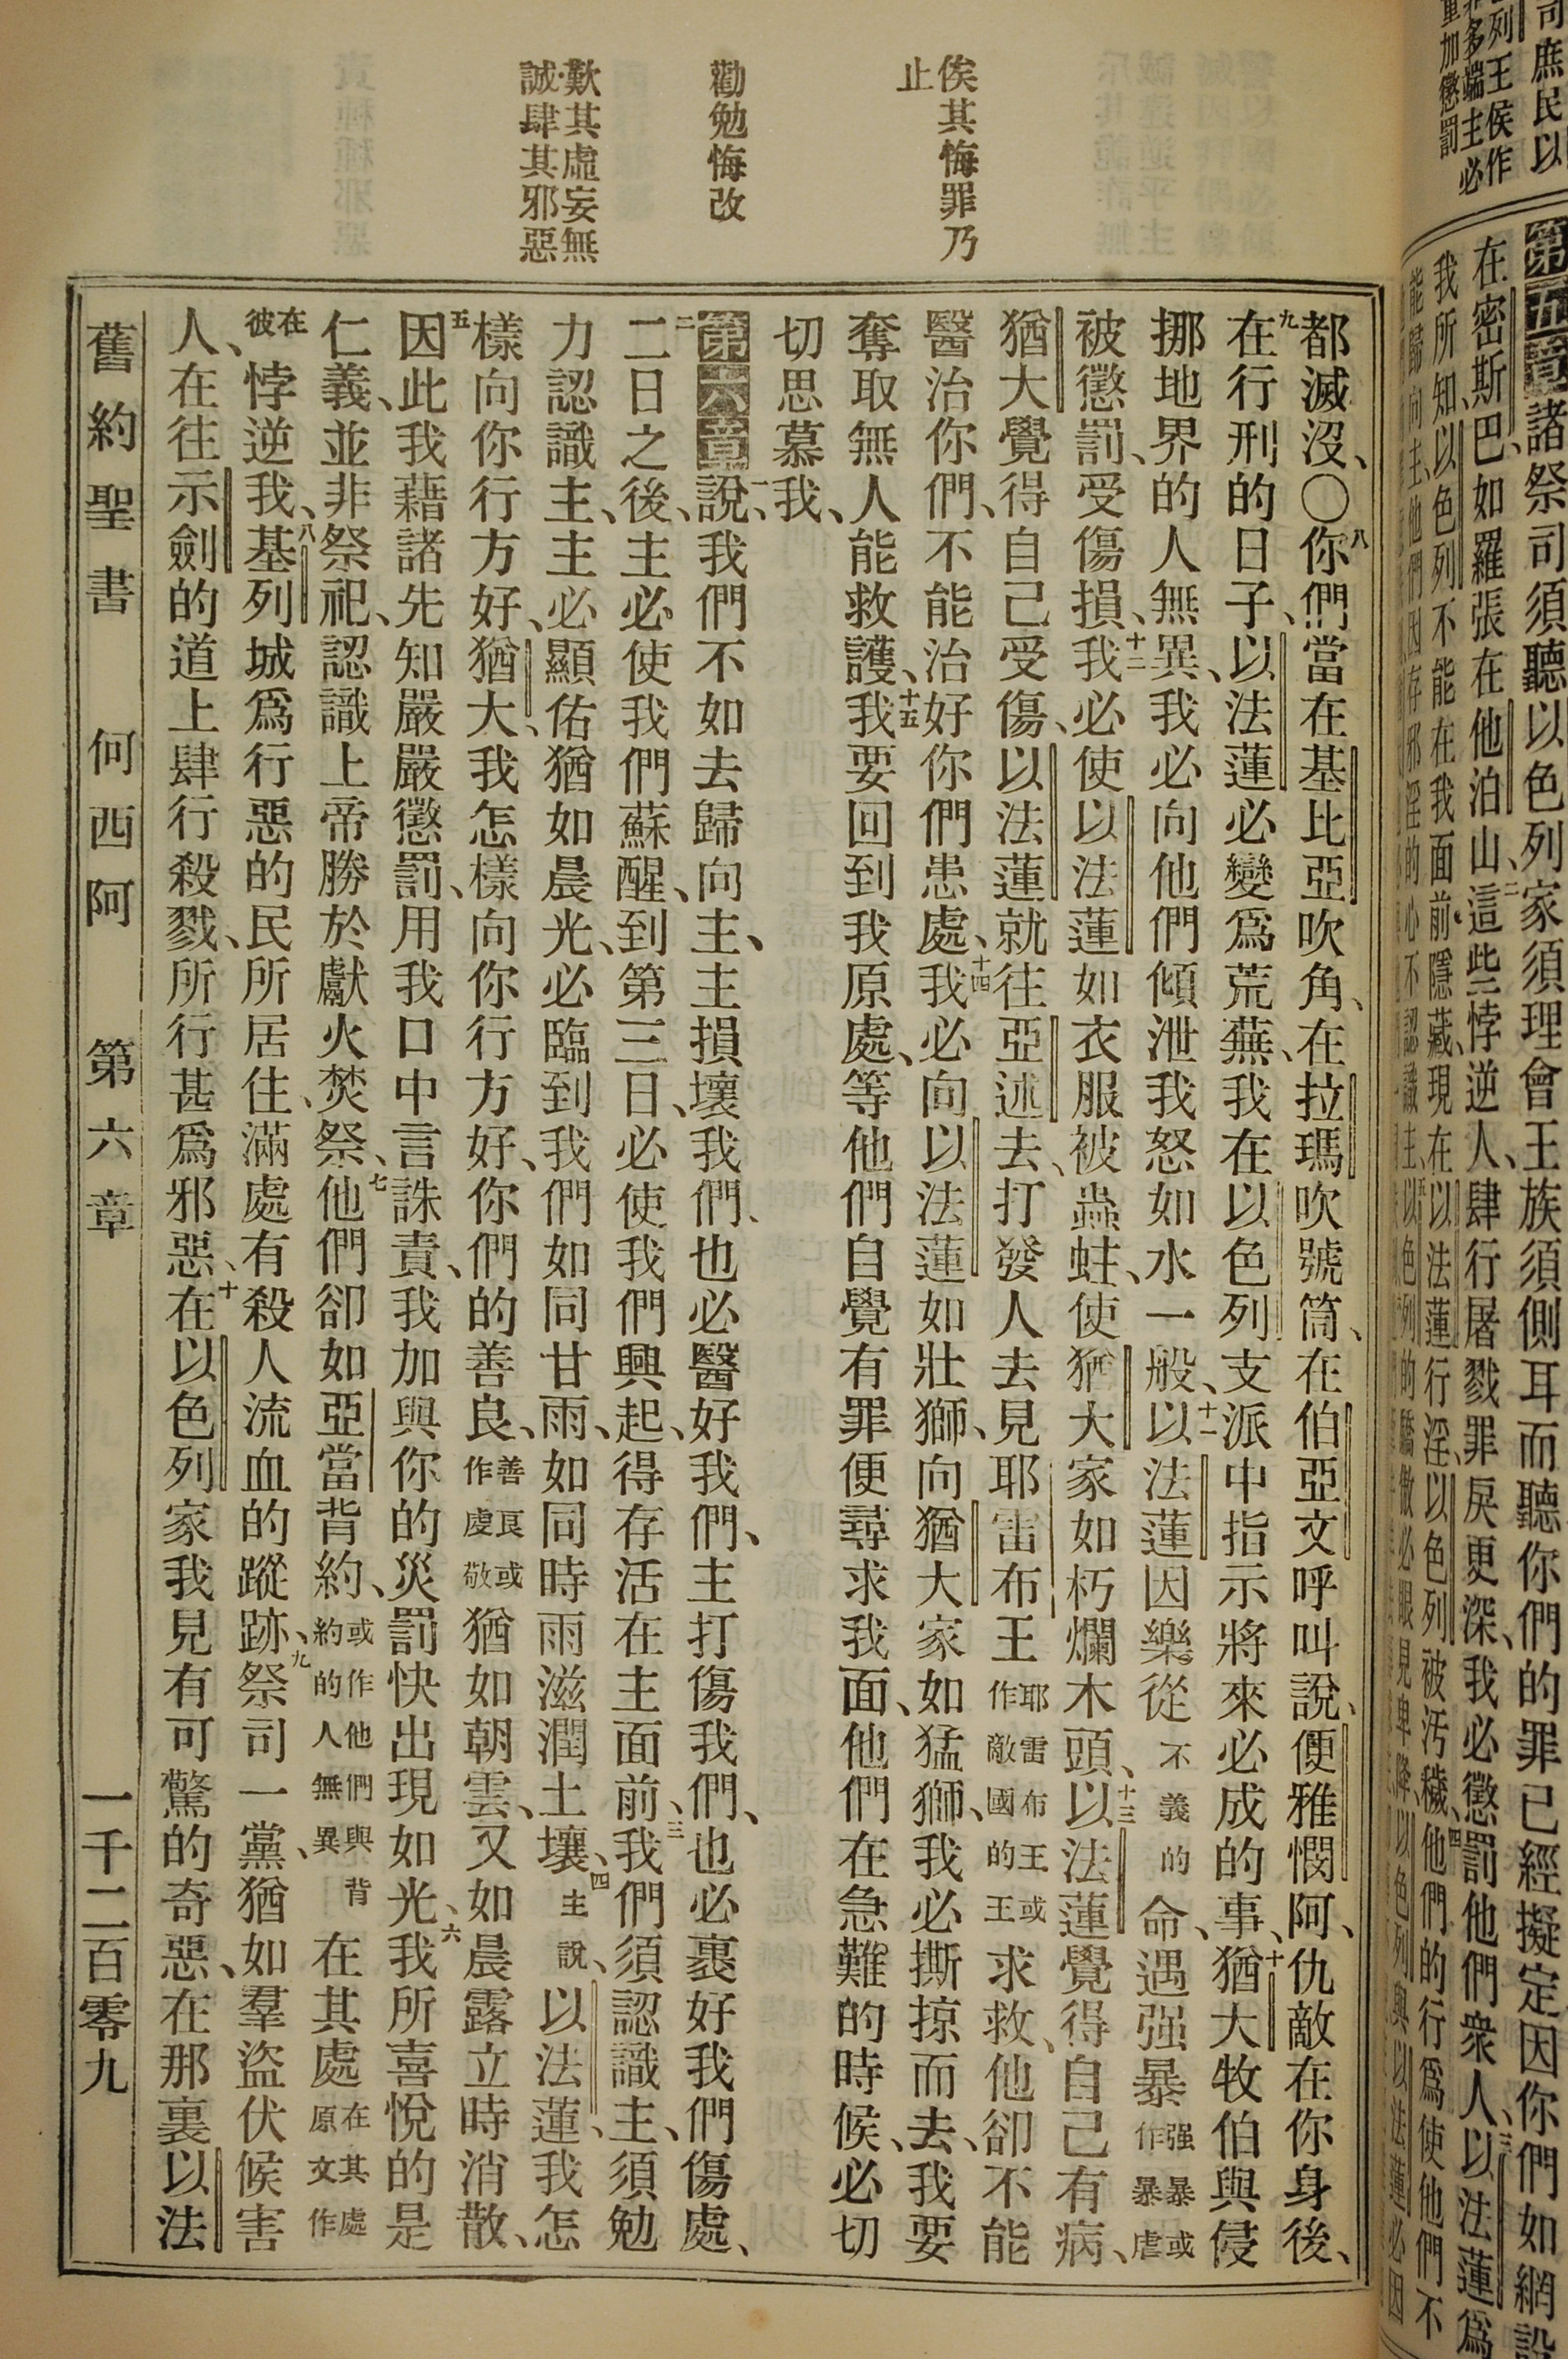 司庶民以
列王侯作
多端主必
重加懲罰
第五章諸祭司須聽以色列家須理會王族須側耳而聽你們的罪已經擬定因你們如網設
在密斯巴、如羅張在他泊山、二這些悖逆人、肆行屠戮罪戾更深、我必懲罰他們衆人、三以法蓮爲
我所知、以色列不能在我面前隱藏、現在以法蓮行淫、以色列被汚穢、四他們的行爲使他們不
能歸向主、他們因存邪淫的心不認識主、以色列的驕傲必眼見卑降、以色列與以法蓮必因
俟其悔罪乃
止
勸勉悔改
歎其虛妄無
誠肆其邪惡
都滅沒、〇八你們當在基比亞吹角、在拉瑪吹號筒、在伯亞文呼叫說、便雅憫阿、仇敵在你身後、
九在行刑的日子、以法蓮必變爲荒蕪、我在以色列支派中指示將來必成的事、十猶大牧伯與侵
挪地界的人無異、我必向他們傾泄我怒如水一般、十一以法蓮因樂從不義的命、遇强暴强暴或作暴虐
被懲罰、受傷損、十二我必使以法蓮如衣服被蟲蛀、使猶大家如朽爛木頭、十三以法蓮覺得自己有病、
猶大覺得自己受傷、以法蓮就往亞述去、打發人去見耶雷布王耶雷布王或作敵國的王求救、他卻不能
醫治你們、不能治好你們患處、十四我必向以法蓮如壯獅、向猶大家如猛獅、我必撕掠而去、我要
奪取無人能救護、十五我要回到我原處、等他們自覺有罪便尋求我面、他們在急難的時候、必切
切思慕我、
第六章一說、我們不如去歸向主、主損壞我們、也必醫好我們、主打傷我們、也必裹好我們傷處、
二二日之後、主必使我們蘇醒、到第三日、必使我們興起、得存活在主面前、三我們須認識主、須勉
力認識主、主必顯佑猶如晨光、必臨到我們如同甘雨、如同時雨滋潤土壤、四主說、以法蓮、我怎
樣向你行方好、猶大、我怎樣向你行方好、你們的善良、善良或作虔敬猶如朝雲、又如晨露立時消散、
五因此我藉諸先知嚴嚴懲罰、用我口中言誅責、我加與你的災罰快出現如光、六我所喜悅的是
仁義、並非祭祀、認識上帝勝於獻火焚祭、七他們卻如亞當背約、或作他們與背約的人無異在其處在其處原文作
在彼悖逆我、八基列城爲行惡的民所居住、滿處有殺人流血的蹤跡、九祭司一黨、猶如羣盜伏候害
人、在往示劍的道上肆行殺戮、所行甚爲邪惡、十在以色列家我見有可驚的奇惡、在那裏以法
舊約聖書 何西阿 第六章 一千二百零九